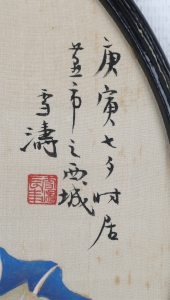 庚寅七夕时居
燕市之西城
雪涛